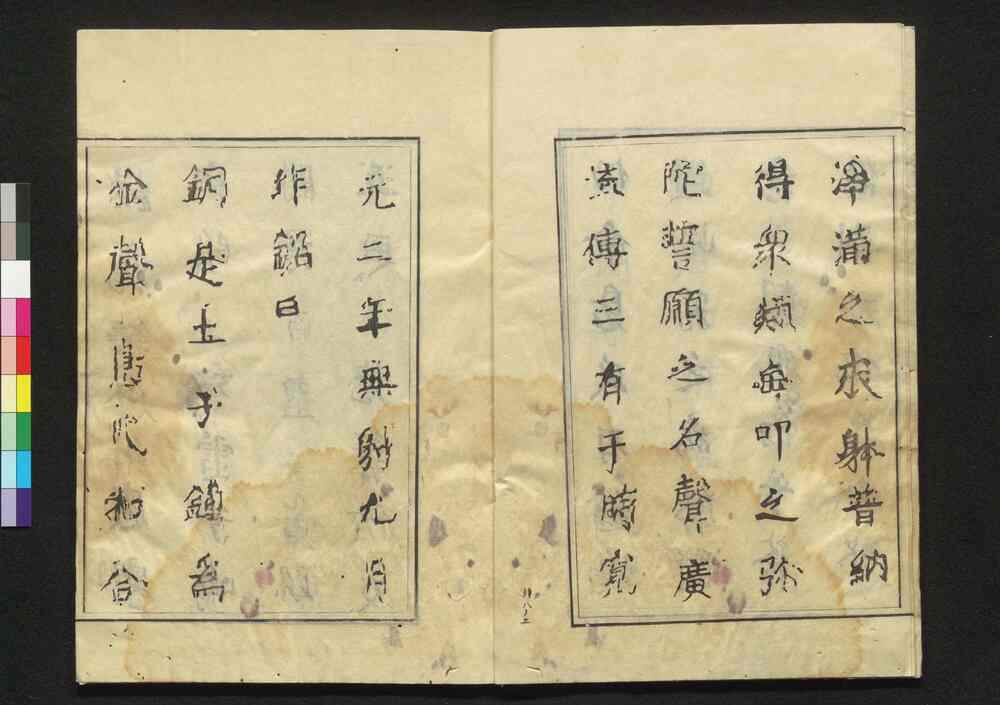 淨滿之求躰普納
得衆類每叩之弥
陀誓願之名聲廣
流傳三有于時寛
元二年無射九月
作銘曰
銅是土子鑄為
金聲德